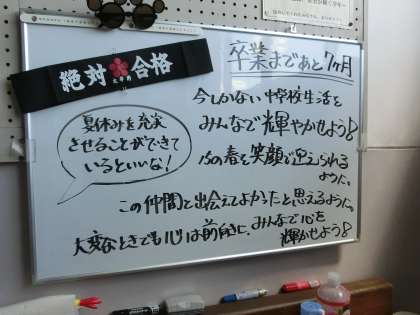 絶対合格
卒業まであと7ヵ月
今しかない中学校生活を
みんなで輝やかせよう!
15の春を笑顔で迎えられる
ように。
夏休みを充実
させることができて
いるといいな!
この仲間と出会えてよかったと思えるように。
大変なときでも心は前向きに、みんなで心を
輝かせよう!